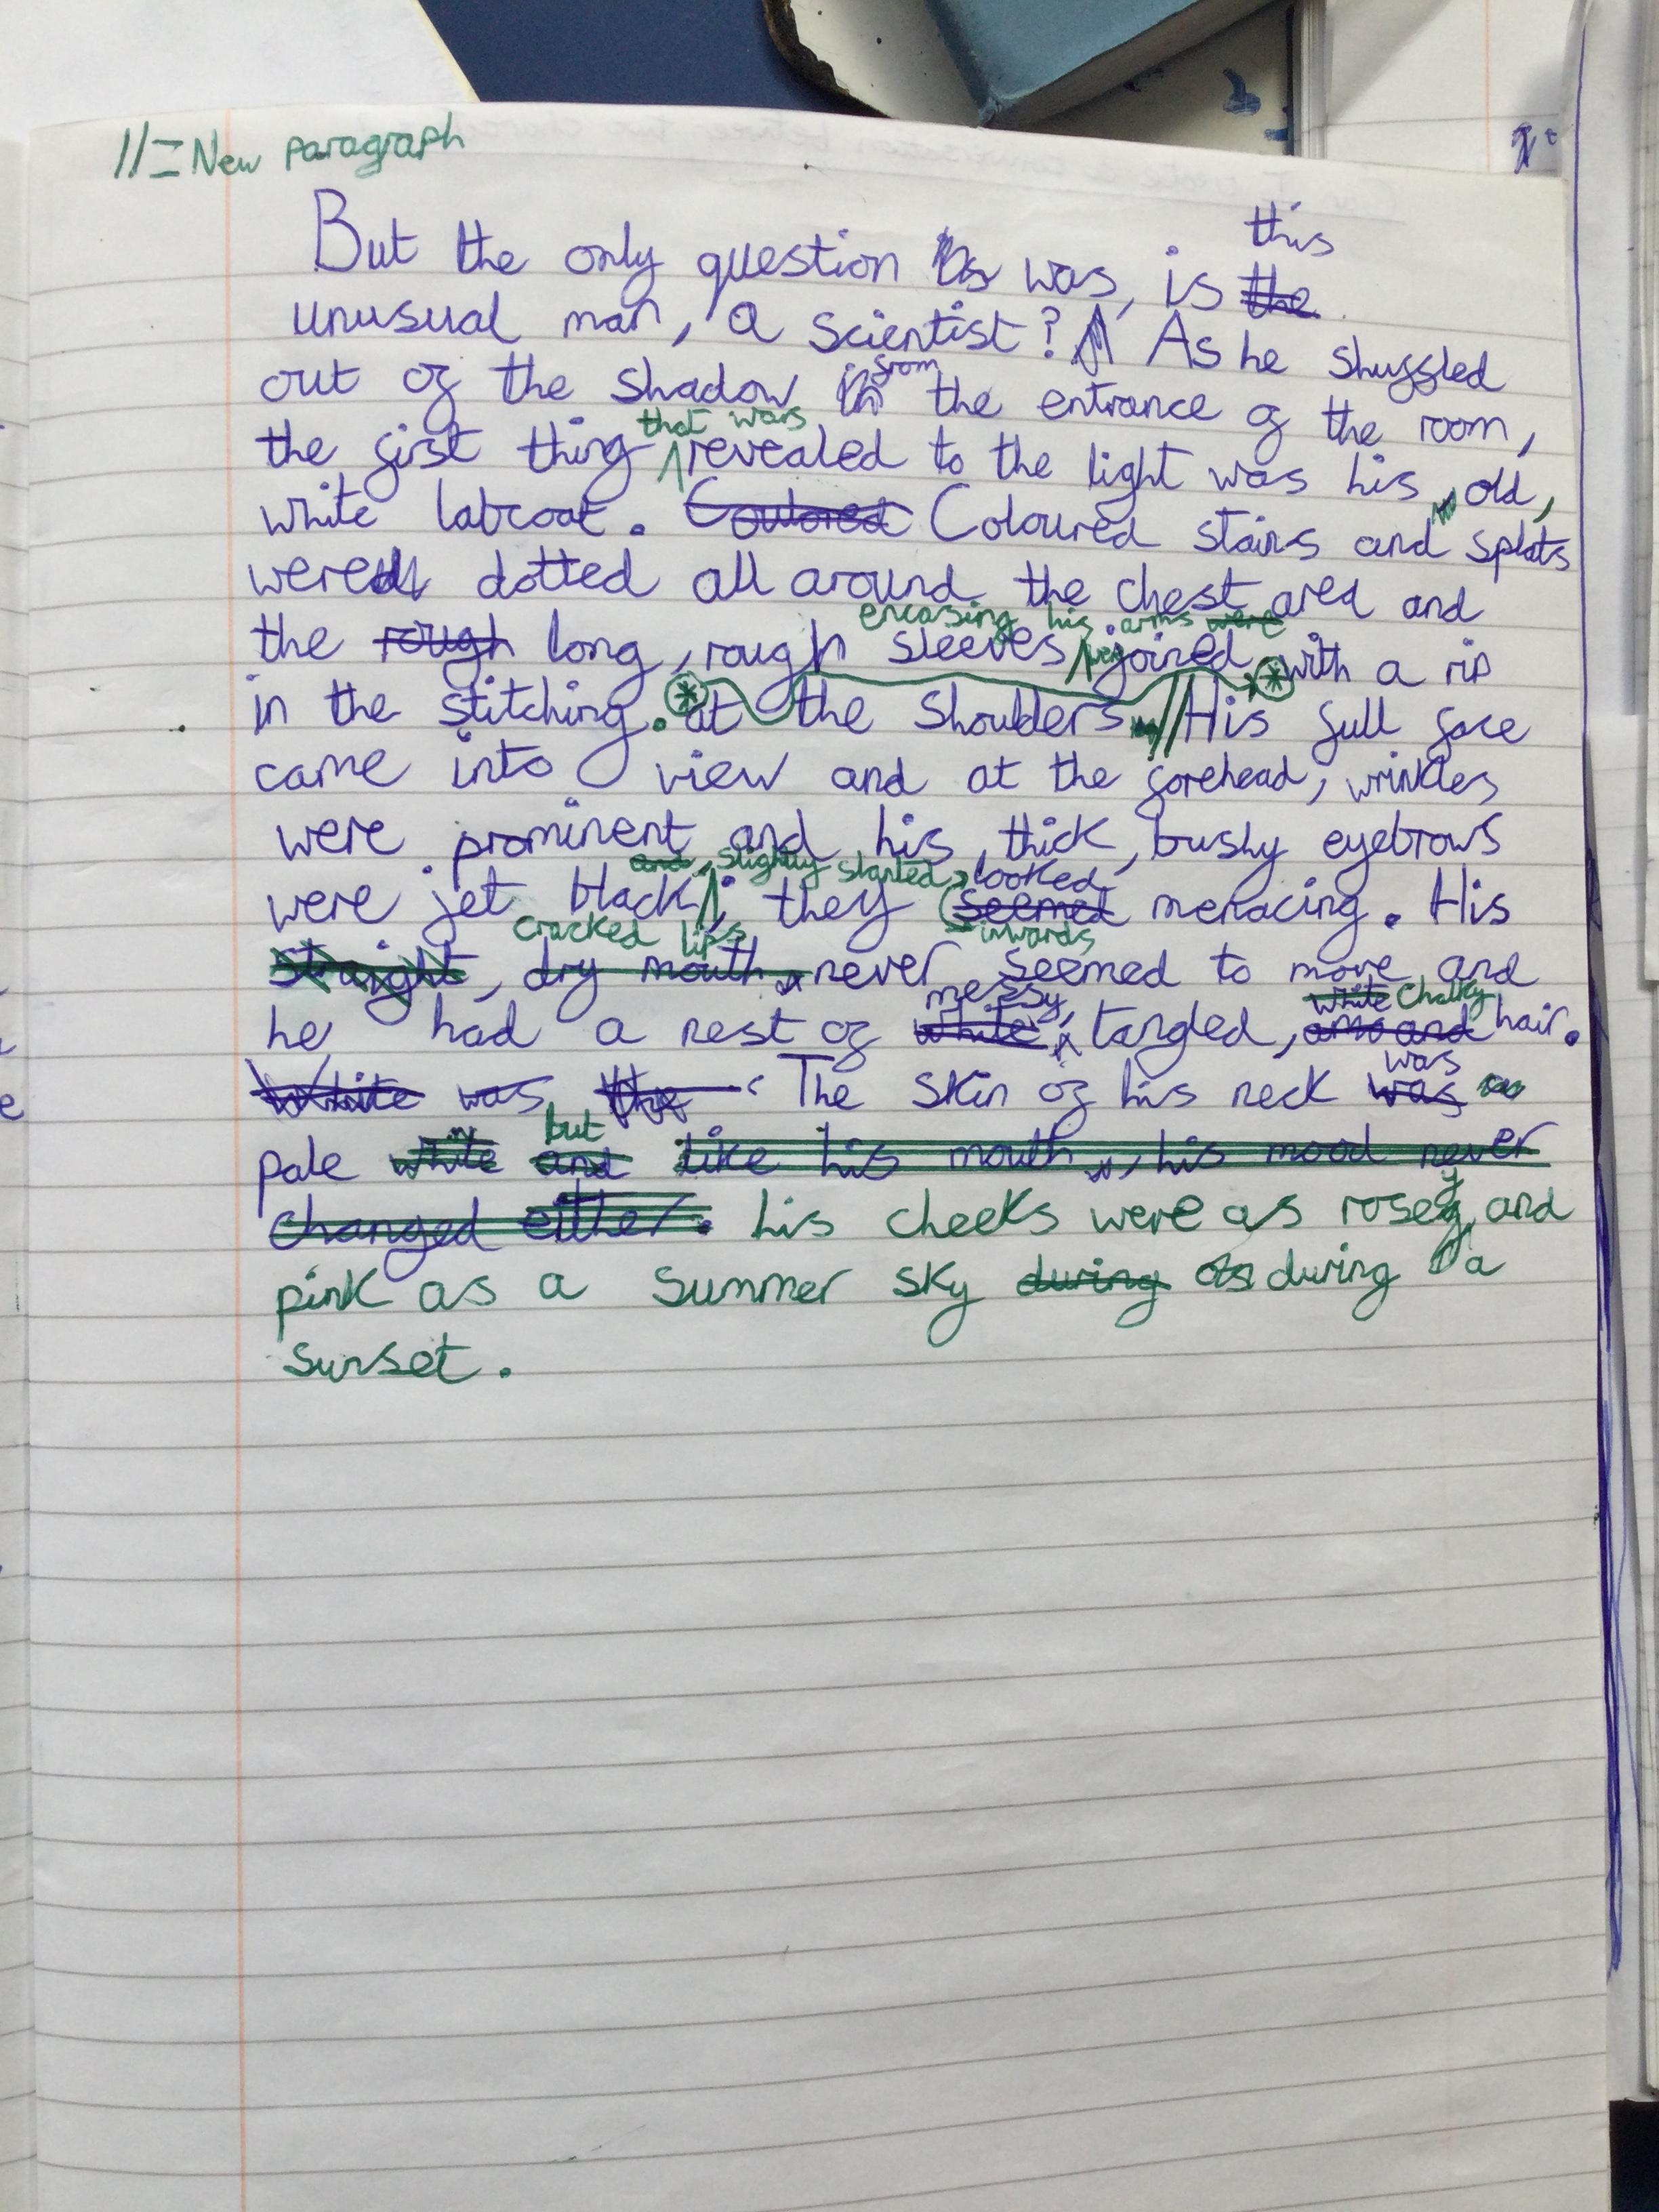 //= New paragraph
this
But the only question was, is the
unusual man, a scientist? As he shuffled
from
out of the shadow the entrance of the room,
that wars
the first thing revealed to the light was his old,
white labcoat. Coulored Coloured stains and splats
were dotted all around the chest area and
encasing his arms were
the rough long, rough sleeves were joined * with a rip
in the stitching. * at the shoulders // His full face
came into view and at the forehead, wrinkles
were prominent and his thick, bushy eyebrows
and, slightly slanted, looked
were jet black; they (seemed menacing. His
cracked lips inwards
straight, dry mouth, never seemed to move and
messy, white chalky
he had a rest of white, tangled, and hair.
was
White was the The skin of his neck was as
but
pale white and like his mouth, his mood never
y
changed either. his cheeks were as rosey and
pink as a summer sky during as during a
sunset.